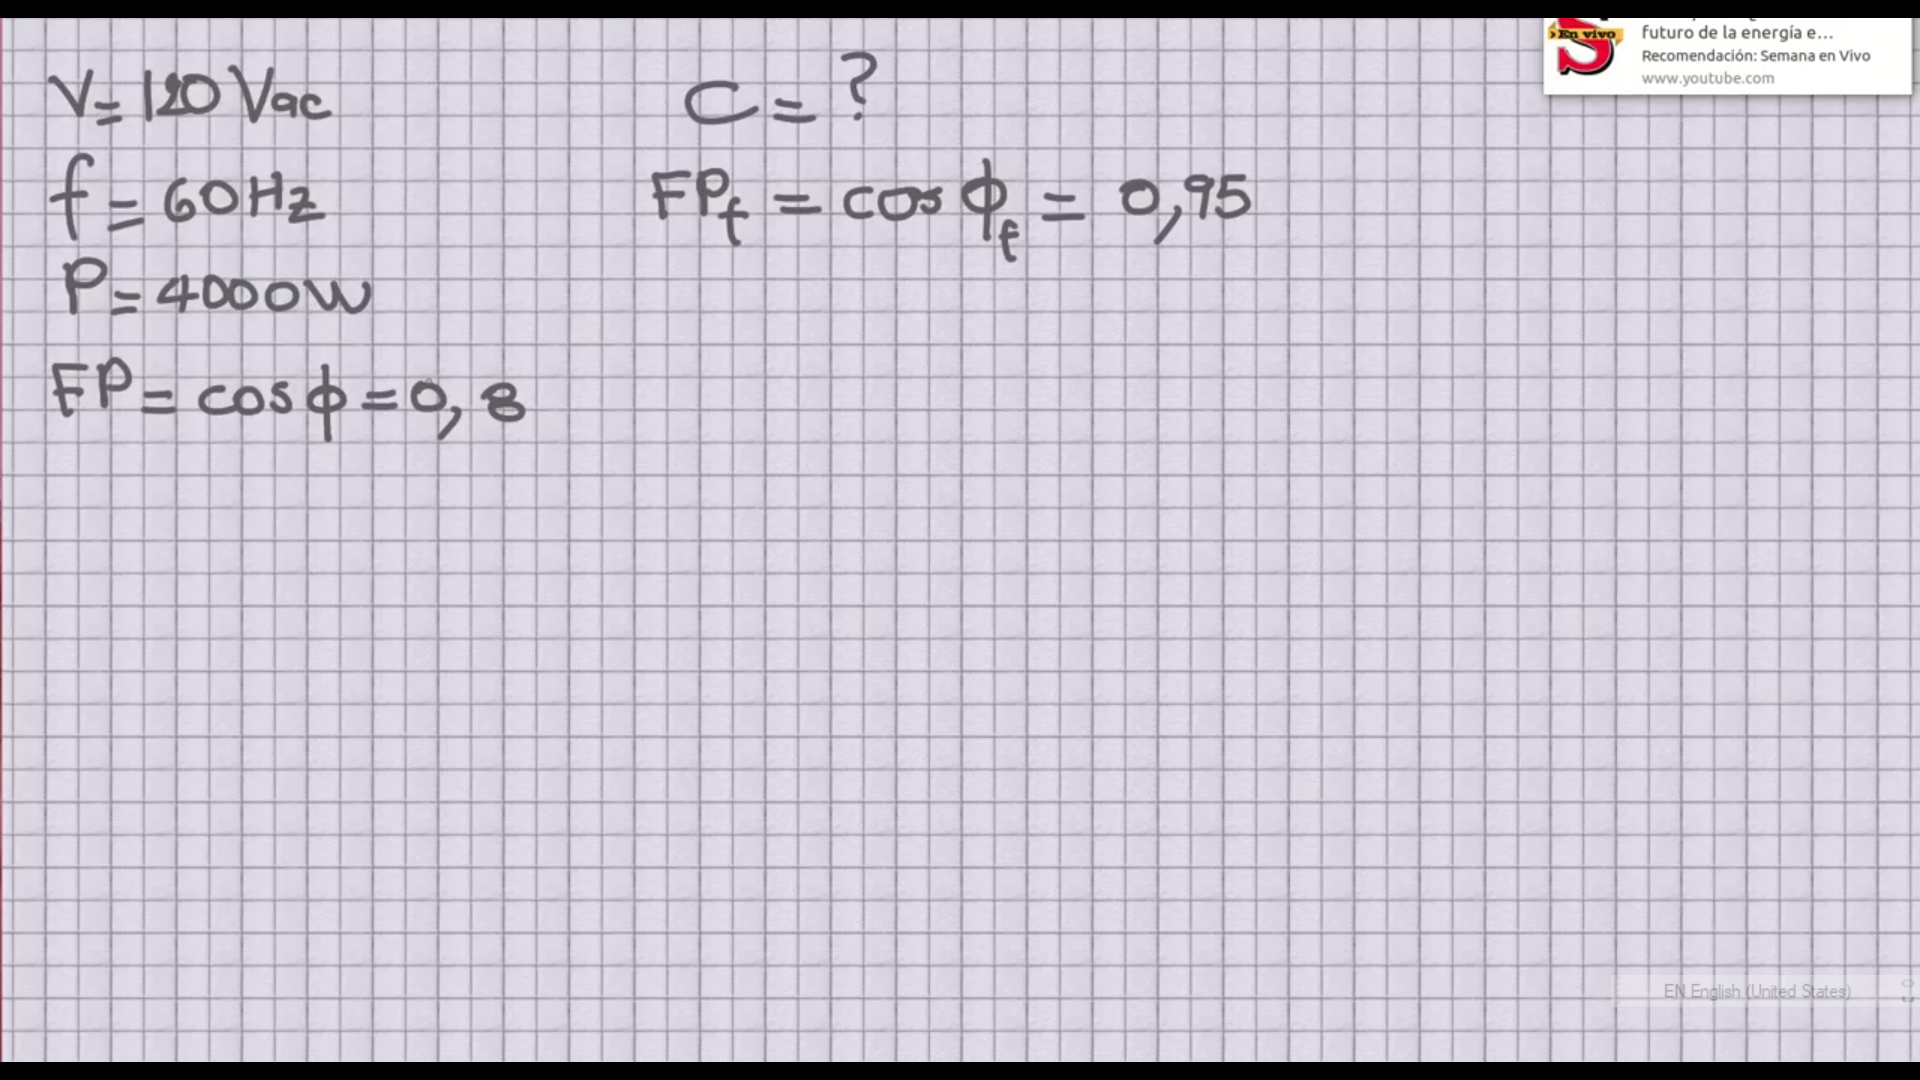 V = 120 Vac
f = 60 Hz
P = 4000 W
FP = cos ϕ = 0,8
C = ?
FP_f = cos ϕ_f = 0,95
En vivo
futuro de la energía e...
Recomendación: Semana en Vivo
www.youtube.com
EN English (United States)